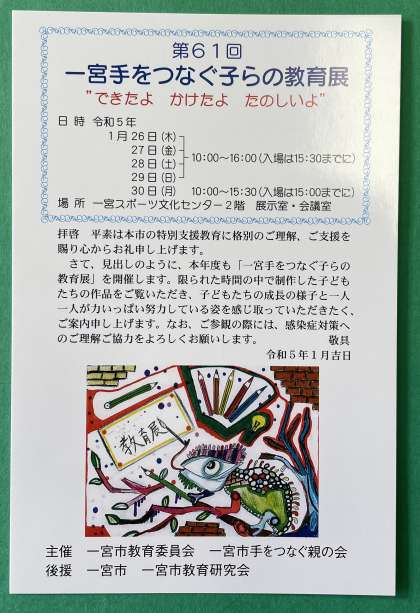 第61回
一宮手をつなぐ子らの教育展
"できたよ かけたよ たのしいよ"
日 時 令和5年
1月26日(木)
27日(金)
28日(土)
29日(日)
10:00〜16:00(入場は15:30までに)
30日(月) 10:00〜15:30(入場は15:00までに)
場 所 一宮スポーツ文化センター2階 展示室・会議室
拝啓 平素は本市の特別支援教育に格別のご理解、ご支援を
賜り心からお礼申し上げます。
さて、見出しのように、本年度も「一宮手をつなぐ子らの
教育展」を開催します。限られた時間の中で制作した子ども
たちの作品をご覧いただき、子どもたちの成長の様子と一人
一人が力いっぱい努力している姿を感じ取っていただきたく、
ご案内申し上げます。なお、ご参観の際には、感染症対策へ
のご理解ご協力をよろしくお願いします。 敬具
令和5年1月吉日
教育展
主催 一宮市教育委員会 一宮市手をつなぐ親の会
後援 一宮市 一宮市教育研究会